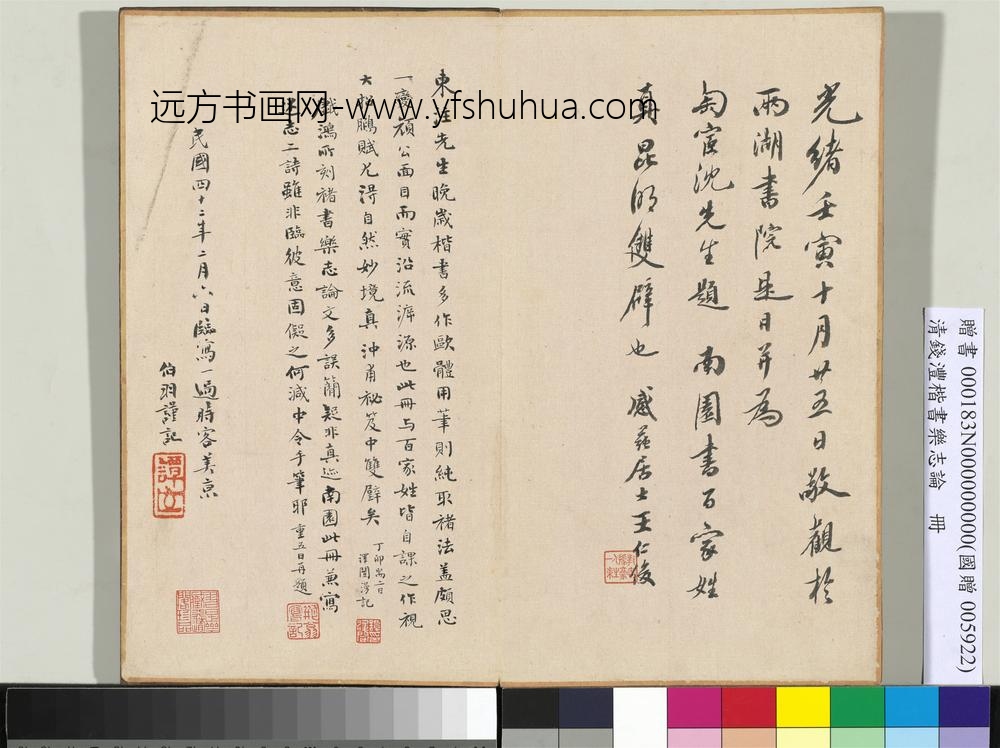 远方书画网-www.yfshuhua.com
光緒壬寅十月廿五日敬觀於
兩湖書院是日并為
匋寅沈先生題 南園書百家姓
真昆明雙璧也 居士王仁俊
東注先生晚歲楷書多作歐體用筆則純取褚法蓋頗思
一變顏公面目而實沿流溯源也此冊与百家姓皆自課之作視
大鵬賦尤得自然妙境真沖甫祕笈中雙璧矣
澤闓謹記
戲鴻所刻褚書樂志論文多誤簡疑非真迹南園此冊兼寫
述志二詩雖非臨彼意固儗之何減中令手筆耶 重五日再題
民國四十二年二月六日臨寫一過時客美京
伯羽謹記
贈書 000183N000000000(國贈 005922)
清錢灃楷書樂志論 冊